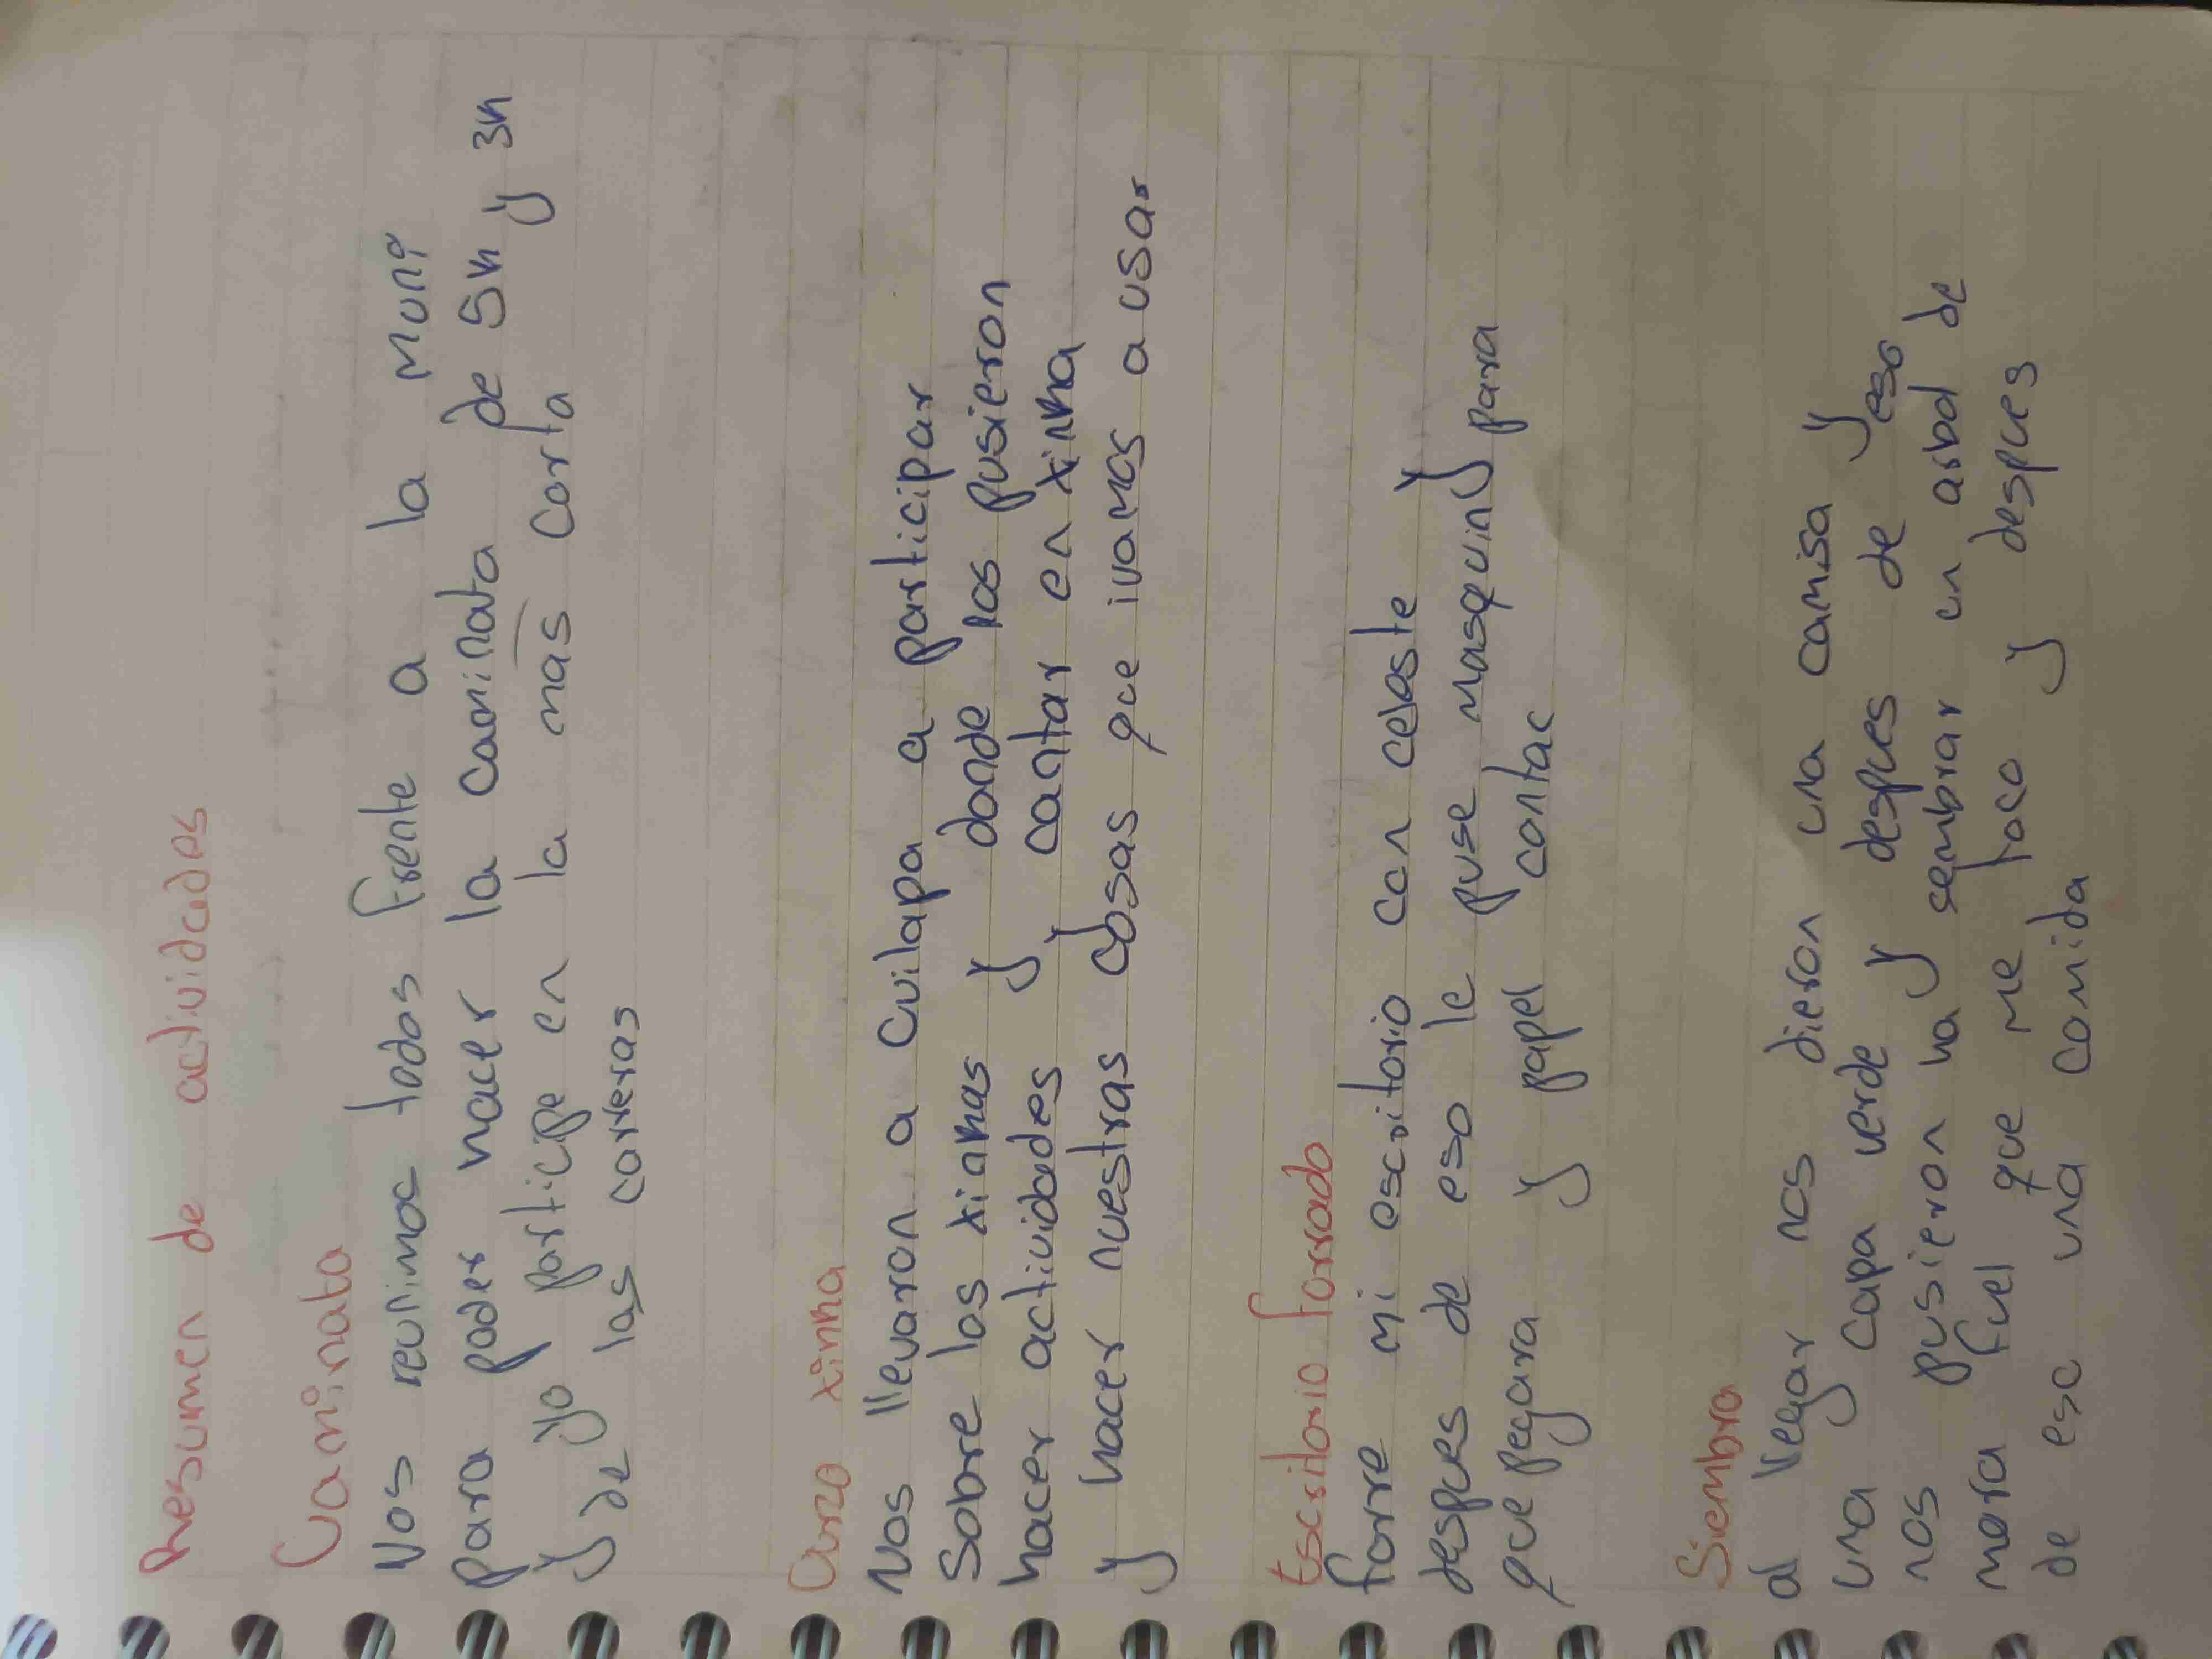 Resumen de actividades
Caminata
Nos reunimos todos frente a la muni
para poder hacer la caminata de 5k y 3k
y de yo participe en la más corta
las carreras
Curzo xinka
Nos llevaron a Cuilapa a participar
sobre los xinkas y donde nos pusieron
hacer actividades y cantar en xinka
y hacer nuestras cosas que ivamos a usar
Escritorio forrado
forre mi escritorio con celeste y
despues de eso le puse masquin y para
que pegara y papel contac
Siembra
al llegar nos dieron una camisa y
una capa verde y despues de eso
nos pusieron ha sembrar un arbol de
mora fuel que me toco y despues
de eso una comida